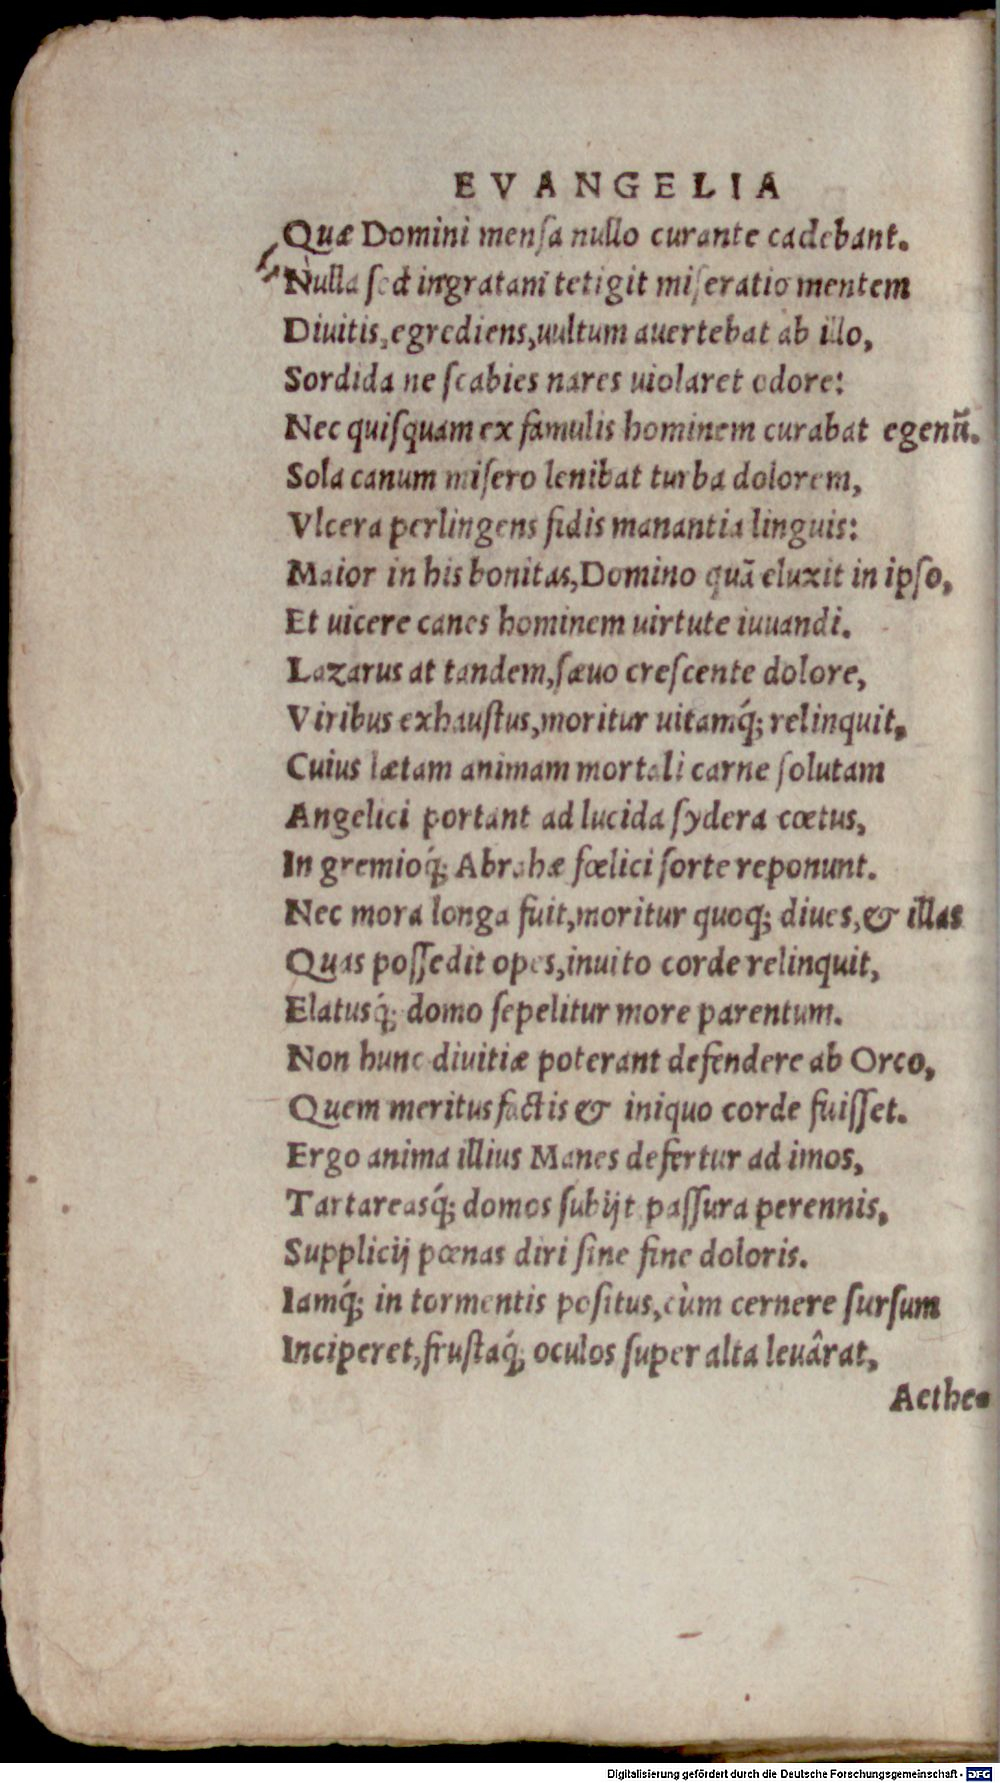 EVANGELIA
Quæ Domini menſa nullo curante cadebant.
Nulla ſed ingratam tetigit miſeratio mentem
Diuitis, egrediens, uultum auertebat ab illo,
Sordida ne ſcabies nares uiolaret odore:
Nec quiſquam ex famulis hominem curabat egenũ.
Sola canum miſero lenibat turba dolorem,
Vlcera perlingens fidis manantia linguis:
Maior in his bonitas, Domino quã eluxit in ipſo,
Et uicere canes hominem uirtute iuuandi.
Lazarus at tandem, ſæuo creſcente dolore,
Viribus exhauſtus, moritur uitamq́; relinquit,
Cuius lætam animam mortali carne ſolutam
Angelici portant ad lucida ſydera cœtus,
In gremioq́; Abrahæ fœlici ſorte reponunt.
Nec mora longa fuit, moritur quoq; diues, & illas
Quas poſſedit opes, inuito corde relinquit,
Elatusq́; domo ſepelitur more parentum.
Non hunc diuitiæ poterant defendere ab Orco,
Quem meritus factis & iniquo corde fuiſſet.
Ergo anima illius Manes defertur ad imos,
Tartareasq́; domos ſubijt paſſura perennis,
Supplicij pœnas diri ſine fine doloris.
Iamq́; in tormentis poſitus, cùm cernere ſurſum
Inciperet, fruſtaq́; oculos ſuper alta leuârat,
Aethe-
Digitalisierung gefördert durch die Deutsche Forschungsgemeinschaft - DFG